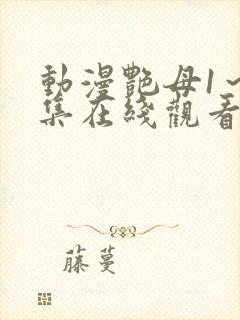 動漫艷母1～
集在綫觀看
藤蔓